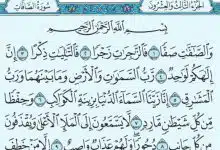 سُورَةُ الصَّافَّاتِ الجُزْءُ الثَّالِثُ وَالعِشْرُونَ
بِسْمِ ٱللَّهِ ٱلرَّحْمَٰنِ ٱلرَّحِيمِ
وَٱلصَّٰٓفَّٰتِ صَفًّا ١ فَٱلزَّٰجِرَٰتِ زَجْرًا ٢ فَٱلتَّٰلِيَٰتِ ذِكْرًا ٣ إِنَّ
إِلَٰهَكُمْ لَوَٰحِدٌ ٤ رَّبُّ ٱلسَّمَٰوَٰتِ وَٱلْأَرْضِ وَمَا بَيْنَهُمَا وَرَبُّ
ٱلْمَشَٰرِقِ ٥ إِنَّا زَيَّنَّا ٱلسَّمَآءَ ٱلدُّنْيَا بِزِينَةٍ ٱلْكَوَاكِبِ ٦ وَحِفْظًا
مِّن كُلِّ شَيْطَٰنٍ مَّارِدٍ ٧ لَّا يَسَّمَّعُونَ إِلَى ٱلْمَلَإِ ٱلْأَعْلَىٰ وَيُقْذَفُونَ
مِن كُلِّ جَانِبٍ ٨ دُحُورًا وَلَهُمْ عَذَابٌ وَاصِبٌ ٩